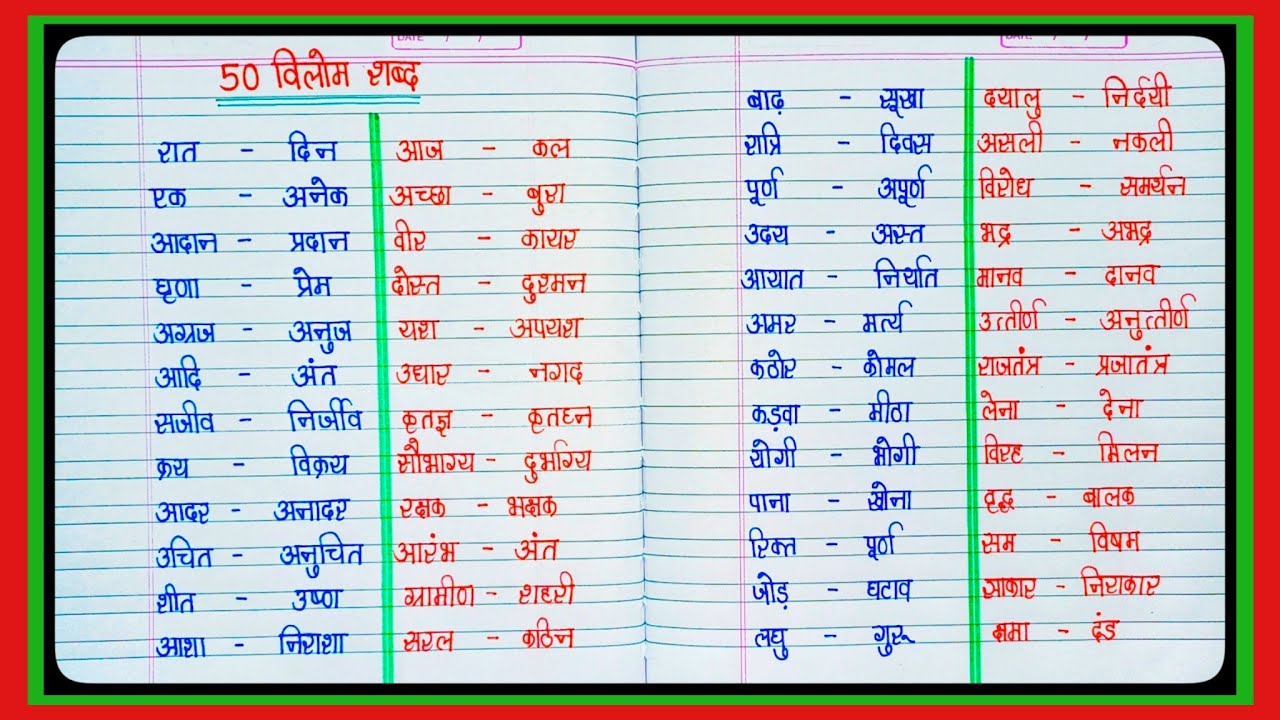 DATE / /
DATE / /
50 विलोम शब्द
रात - दिन
एक - अनेक
आदान - प्रदान
घृणा - प्रेम
अग्रज - अनुज
आदि - अंत
सजीव - निर्जीव
क्रय - विक्रय
आदर - अनादर
उचित - अनुचित
शीत - उष्ण
आशा - निराशा
आज - कल
अच्छा - बुरा
वीर - कायर
दोस्त - दुश्मन
यश - अपयश
उधार - नगद
कृतज्ञ - कृतघ्न
सौभाग्य - दुर्भाग्य
रक्षक - भक्षक
आरंभ - अंत
ग्रामीण - शहरी
सरल - कठिन
बाढ़ - सूखा
रात्रि - दिवस
पूर्ण - अपूर्ण
उदय - अस्त
आयात - निर्यात
अमर - मर्त्य
कठोर - कोमल
कड़वा - मीठा
योगी - भोगी
पाना - खोना
रिक्त - पूर्ण
जोड़ - घटाव
लघु - गुरू
दयालु - निर्दयी
असली - नकली
विरोध - समर्थन
भद्र - अभद्र
मानव - दानव
उत्तीर्ण - अनुत्तीर्ण
राजतंत्र - प्रजातंत्र
लेना - देना
विरह - मिलन
वृद्ध - बालक
सम - विषम
साकार - निराकार
क्षमा - दंड